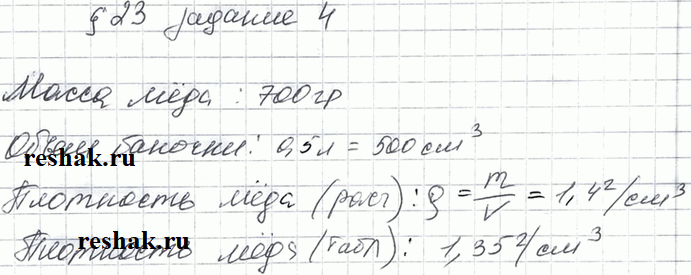 § 23 задание 4
Масса мёда : 700гр
Объем баночки: 0,5л = 500 см³
reshak.ru
Плотность мёда (расч) : ρ = m/V = 1,4г/см³
reshak.ru
Плотность мёда (табл) : 1,35г/см³